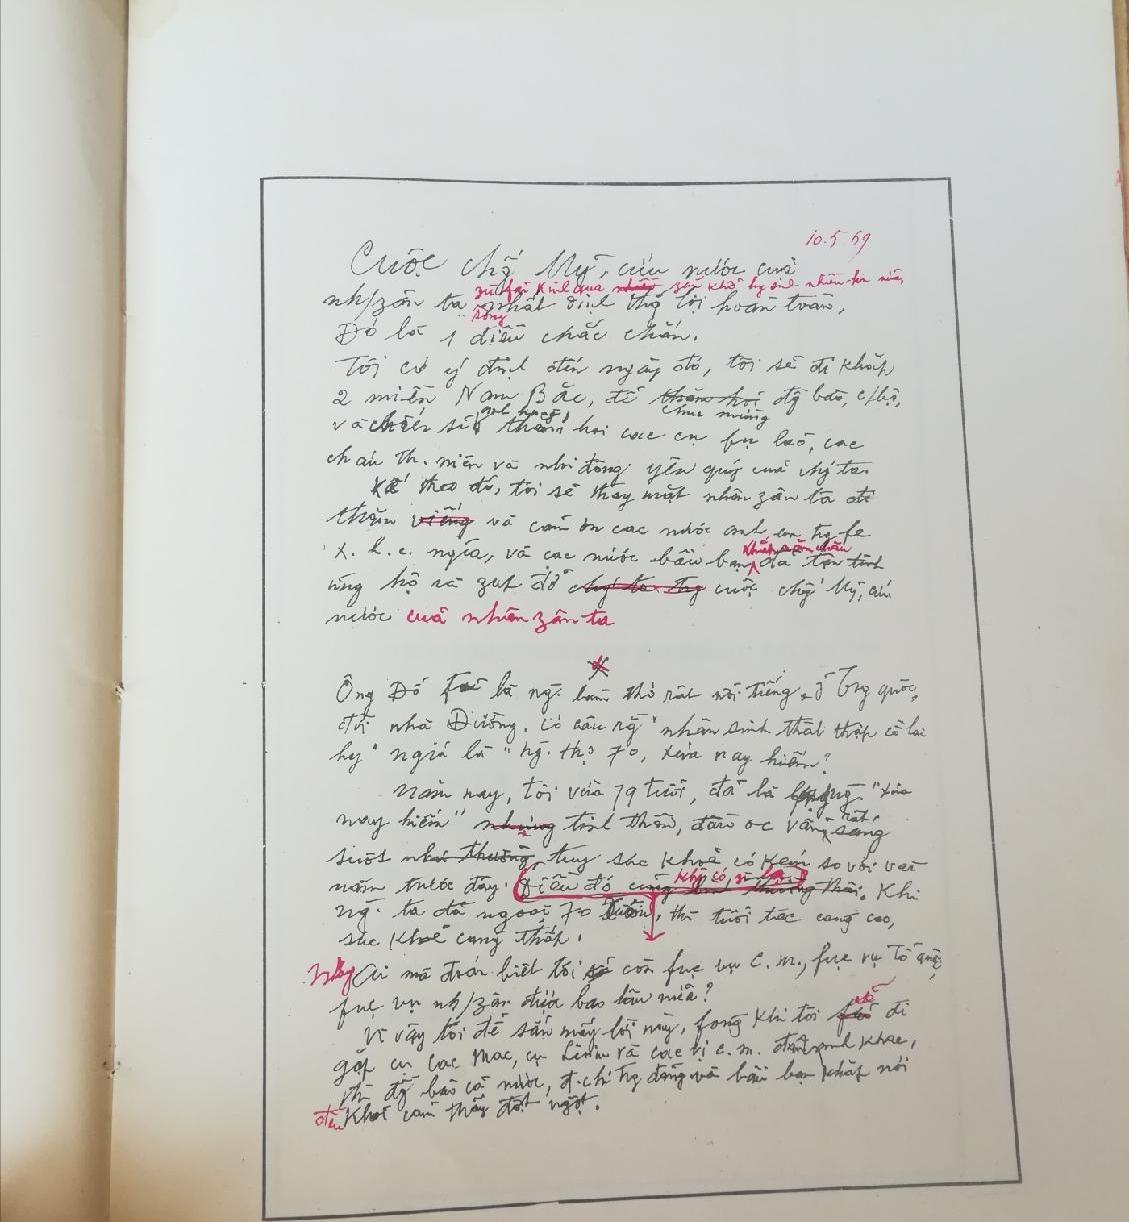 10.5.69
Cuộc chố Mỹ, cứu nước của
zù fải kinh qua zan khổ hy sinh nhiều hơn nữa,
nh/zân ta nhất định thg lợi hoàn toàn,
song
Đó là 1 điều chắc chắn.
Tôi có ý định đến ngày đó, tôi sẽ đi khắp
2 miền Nam Bắc, để thăm hỏi đg bào, c/bộ,
chúc mừng
và chiến sĩ anh hùng, thăm hỏi các cụ fụ lão, các
cháu th. niên và nhi đồng yêu quý của chg ta.
Kế theo đó, tôi sẽ thay mặt nhân zân ta đi
thăm viếng và cám ơn các nước anh em tg fe
khắp năm châu
x. h. c. ngĩa, và các nước bầu bạn đã tận tình
ủng hộ và zúp đỡ chg ta trg cuộc chố Mỹ, cứu
nước của nhân zân ta
Ông Đỗ Fủ là ng. làm thơ rất nổi tiếng ở Trg quốc,
đời nhà Đường. Có câu rg "nhân sinh thất thập cổ lai
hy" ngĩa là "ng. thọ 70, xưa nay hiếm".
Năm nay, tôi vừa 79 tuổi, đã là lớp ng. "xưa
nay hiếm" nhưng tinh thần, đầu óc vẫn rất sáng
suốt như thường, tuy sức khoẻ có kém so với vài
khg có gì lạ
năm trước đây. Điều đó cũng bình thường thôi. Khi
ng. ta đã ngoài 70 xuân, thì tuổi tác càng cao,
sức khoẻ càng thấp.
Nhg ai mà đoán biết tôi sẽ còn fục vụ c. m., fục vụ Tổ quốc,
fục vụ nh/zân được bao lâu nữa?
Vì vậy tôi để sẵn mấy lời này, fòng khi tôi sẽ đi
gặp cụ Các Mác, cụ Lênin và các vị c. m. đàn anh khác,
thì đg bào cả nước, đ. chí trg đảng và bầu bạn khắp nơi
đều khỏi cảm thấy đột ngột.